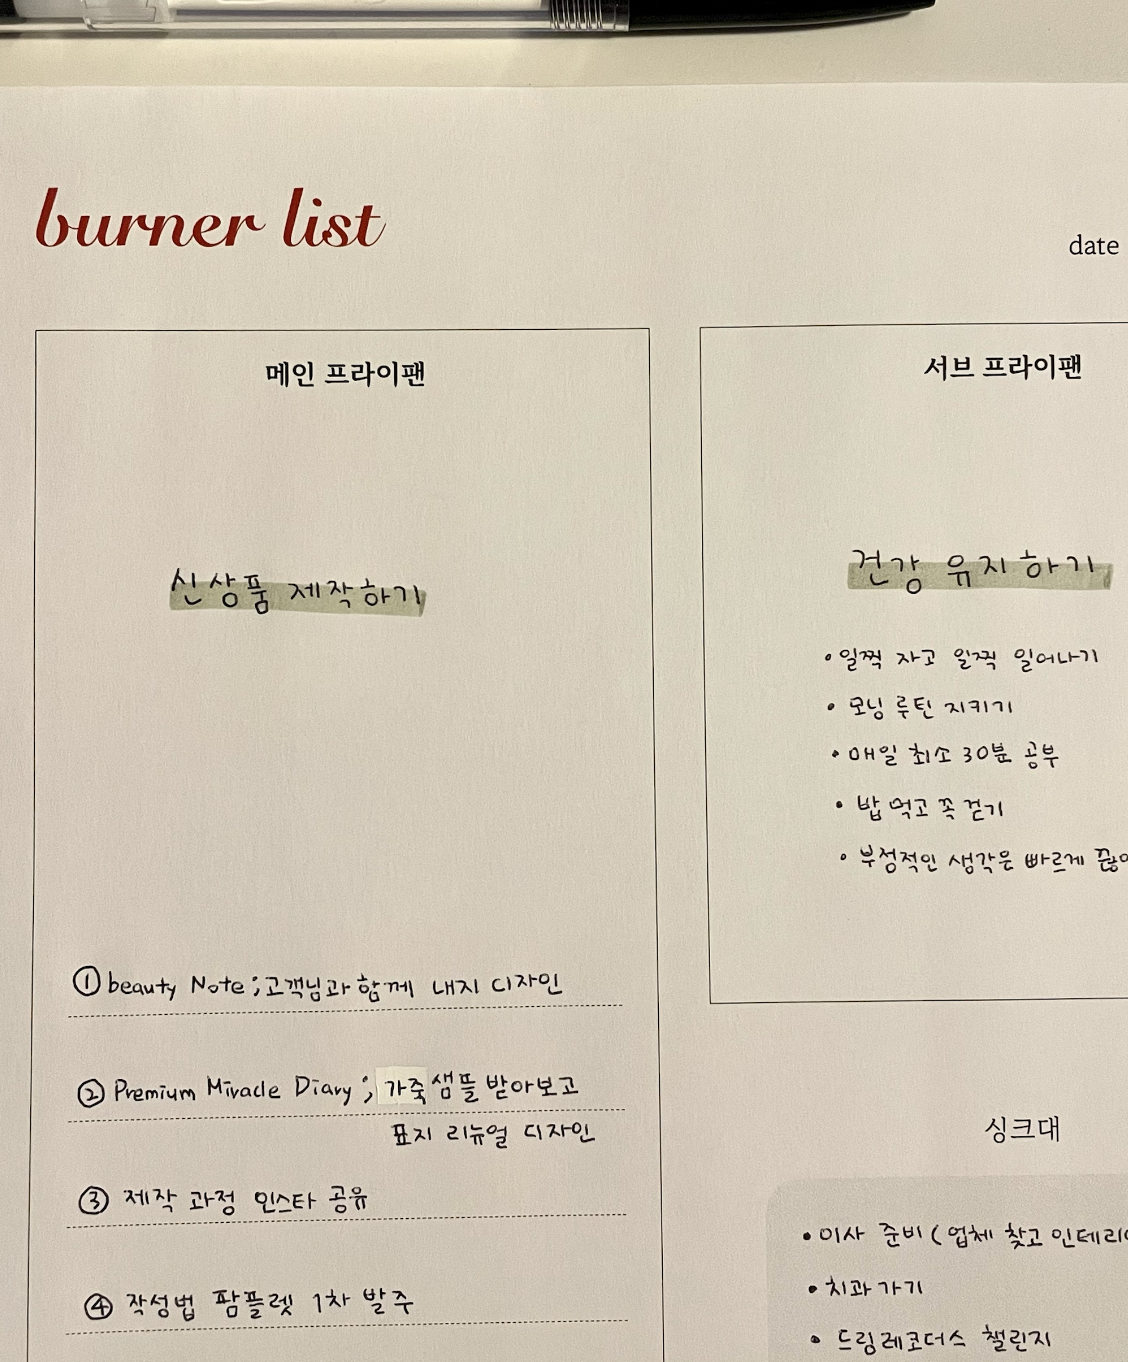 burner list
date
메인 프라이팬
신상품 제작하기
① beauty Note ; 고객님과 함께 내지 디자인
② Premium Miracle Diary ; 가죽 샘플 받아보고
표지 리뉴얼 디자인
③ 제작 과정 인스타 공유
④ 작성법 팜플렛 1차 발주
서브 프라이팬
건강 유지하기
• 일찍 자고 일찍 일어나기
• 모닝 루틴 지키기
• 매일 최소 30분 공부
• 밥 먹고 꼭 걷기
• 부정적인 생각은 빠르게
싱크대
• 이사 준비 ( 업체 찾고
• 치과 가기
• 드림레코더스 챌린지